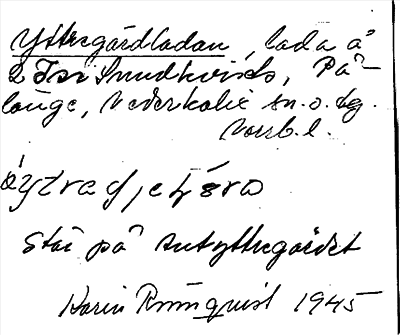 Yttregärdladan, lada å
2 Tor Sundkvists, På-
länge, Nederkalix sn. o. tg.
Norrb. l.
Står på Yttregärdet
Karin Rönnquist 1945